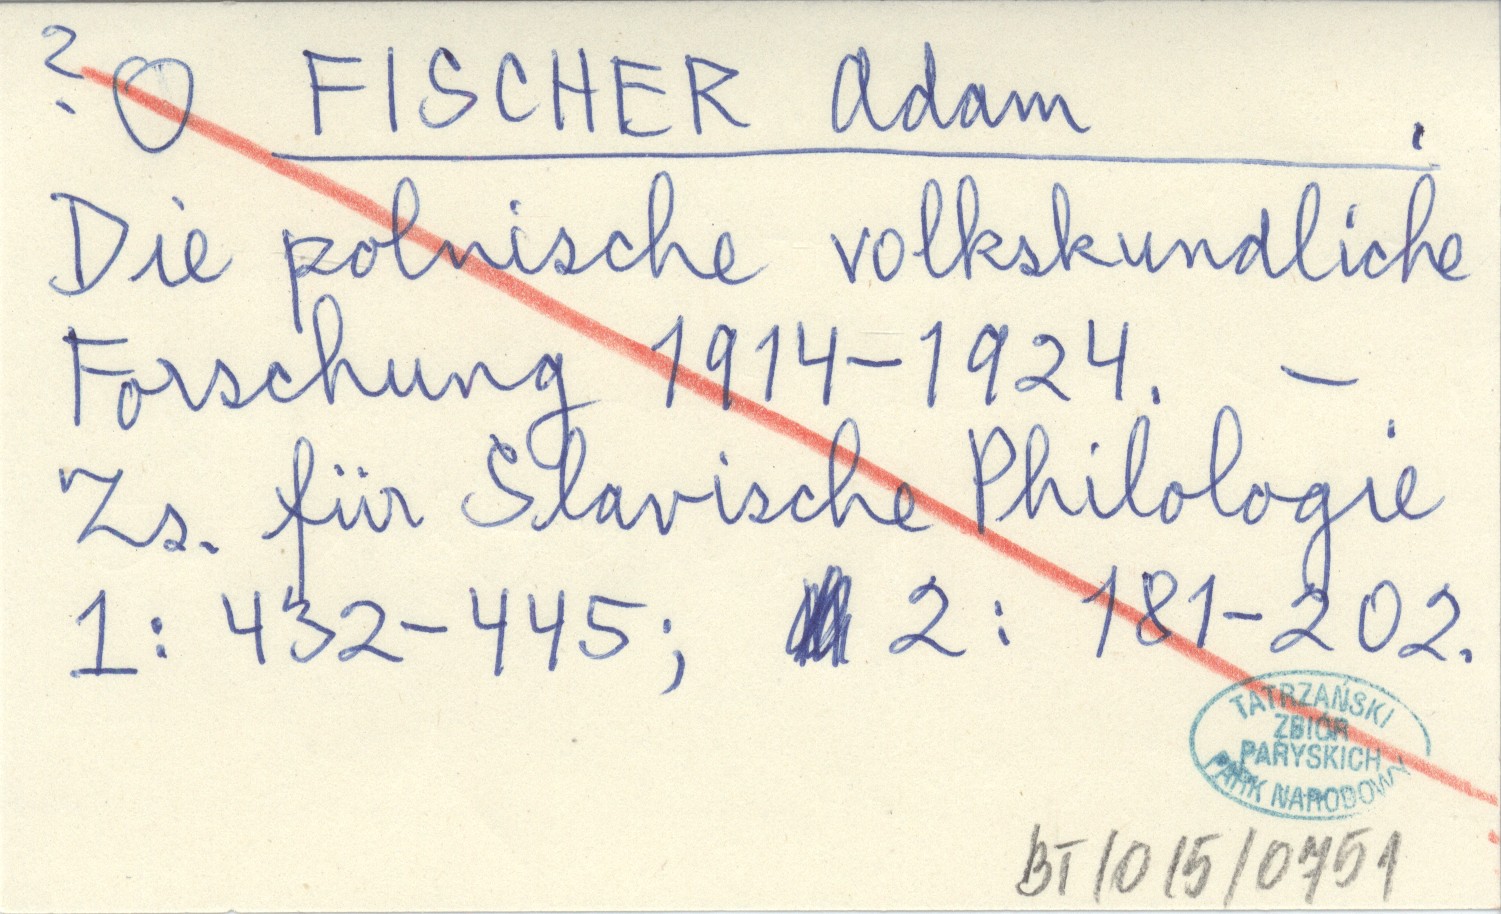 ? O FISCHER Adam
Die polnische volkskundliche
Forschung 1914-1924. -
Zs. für Slavische Philologie
1: 432-445; 2: 181-202.
TATRZAŃSKI
ZBIÓR
PARYSKICH
PARK NARODOWY
BT/015/0751